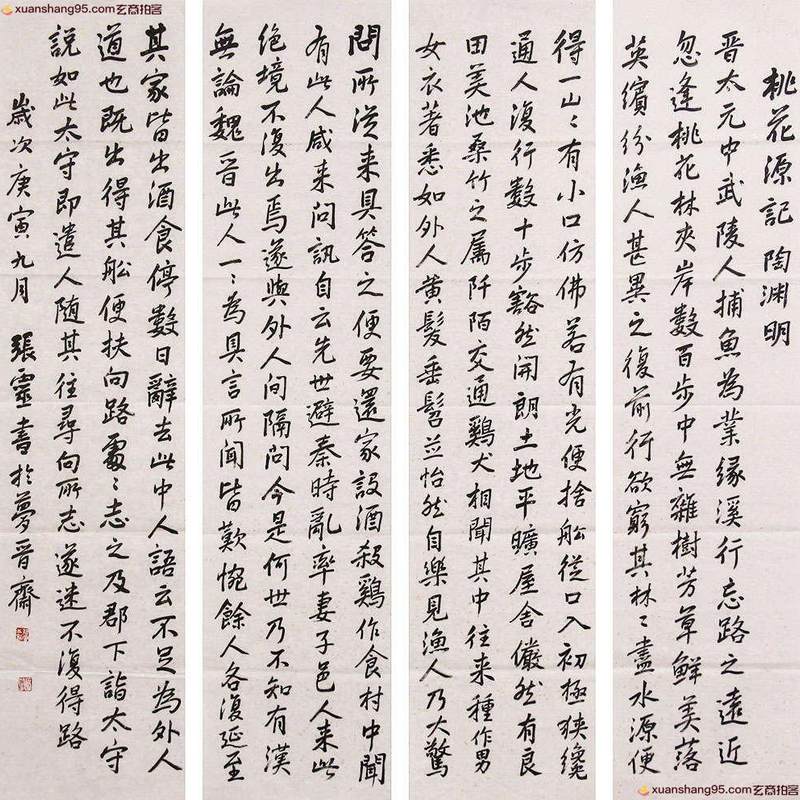 xuanshang95.com玄商拍客
桃花源記 陶渊明
晋太元中武陵人捕魚為業緣溪行忘路之遠近
忽逢桃花林夾岸數百步中無雜樹芳草鮮美落
英繽纷漁人甚異之復前行欲窮其林〻盡水源便
得一山〻有小口仿佛若有光便捨船從口入初極狹纔
通人復行數十步豁然開朗土地平曠屋舍儼然有良
田美池桑竹之属阡陌交通鷄犬相聞其中往来種作男
女衣著悉如外人黄髮垂髫並怡然自樂見漁人乃大驚
問所從来具答之便要還家設酒殺鷄作食村中聞
有此人咸来問訊自云先世避秦時亂率妻子邑人来此
绝境不復出焉遂與外人间隔問今是何世乃不知有漢
無論魏晋此人一〻為具言所聞皆歎惋餘人各復延至
其家皆出酒食停數日辭去此中人語云不足為外人
道也既出得其船便扶向路處〻志之及郡下詣太守
説如此太守即遣人随其往尋向所志遂迷不復得路
歲次庚寅九月 張靈書於夢晋齋
xuanshang95.com玄商拍客